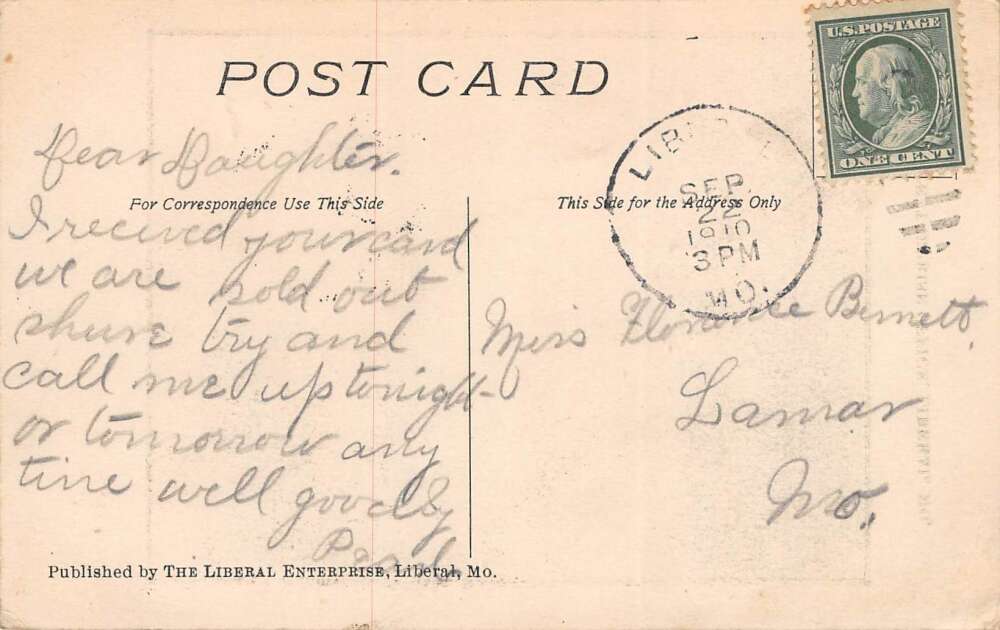 POST CARD
U.S. POSTAGE
ONE CENT
LIBERAL
SEP
22
1910
3 PM
MO.
For Correspondence Use This Side
This Side for the Address Only
Dear Daughter.
I recived your card
we are sold out
shure try and
call me up tonight
or tomorrow any
time well goodby
Miss Florence Bennett
Lamar
Mo.
Published by THE LIBERAL ENTERPRISE, Liberal, Mo.